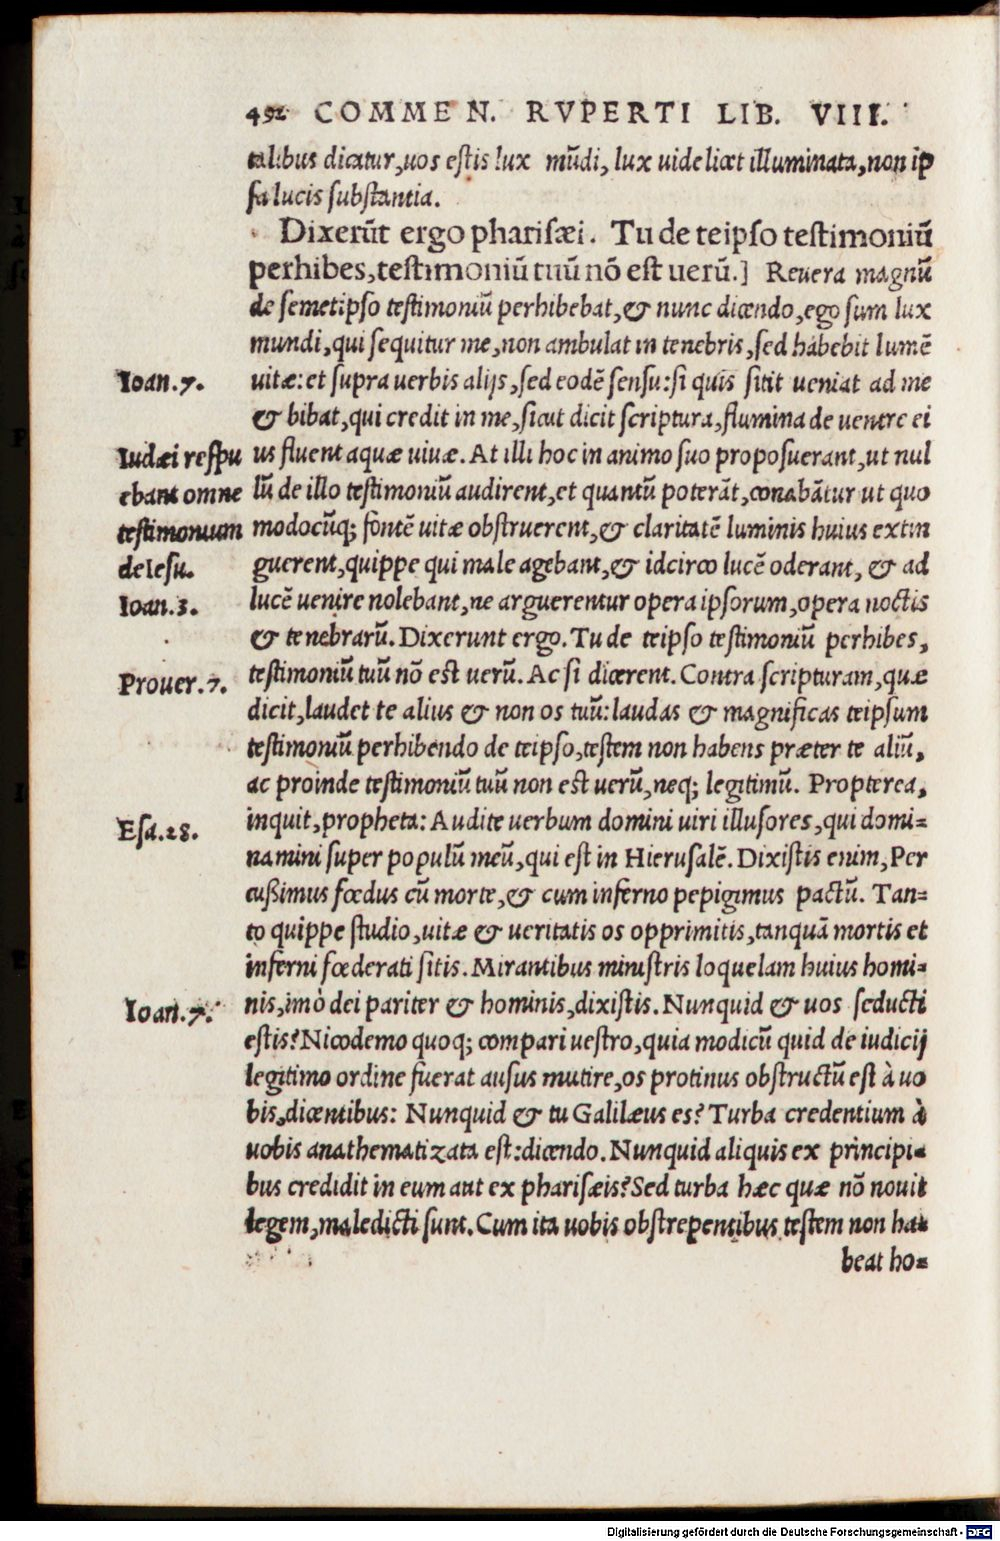 492 COMMEN. RVPERTI LIB. VIII.
talibus dicatur,uos estis lux mũdi, lux uidelicet illuminata,non ip
sa lucis substantia.
Dixerũt ergo pharisæi. Tu de teipso testimoniũ
perhibes,testimoniũ tuũ nõ est uerũ.] Reuera magnũ
de semetipso testimoniũ perhibebat,& nunc dicendo,ego sum lux
mundi,qui sequitur me,non ambulat in tenebris,sed habebit lumẽ
Ioan.7.
uitæ:et supra uerbis alijs,sed eodẽ sensu:si quis sitit ueniat ad me
& bibat,qui credit in me,sicut dicit scriptura,flumina de uentre ei
Iudæi respu
us fluent aquæ uiuæ. At illi hoc in animo suo proposuerant,ut nul
ebant omne
lũ de illo testimoniũ audirent,et quantũ poterãt,conabãtur ut quo
testimonium
modocũq; fontẽ uitæ obstruerent,& claritatẽ luminis huius extin
de Iesu.
guerent,quippe qui male agebant,& idcirco lucẽ oderant, & ad
Ioan.3.
lucẽ uenire nolebant,ne arguerentur opera ipsorum,opera noctis
& tenebrarũ. Dixerunt ergo. Tu de teipso testimoniũ perhibes,
Prouer.7.
testimoniũ tuũ nõ est uerũ. Ac si dicerent. Contra scripturam,quæ
dicit,laudet te alius & non os tuũ:laudas & magnificas teipsum
testimoniũ perhibendo de teipso,testem non habens præter te aliũ,
ac proinde testimoniũ tuũ non est uerũ,neq; legitimũ. Propterea,
Esa.28.
inquit,propheta: Audite uerbum domini uiri illusores,qui domi=
namini super populũ meũ,qui est in Hierusalẽ. Dixistis enim,Per
cußimus fœdus cũ morte,& cum inferno pepigimus pactũ. Tan=
to quippe studio,uitæ & ueritatis os opprimitis,tanquã mortis et
inferni fœderati sitis. Mirantibus ministris loquelam huius homi=
Ioan.7.
nis,imò dei pariter & hominis,dixistis. Nunquid & uos seducti
estis? Nicodemo quoq; compari uestro,quia modicũ quid de iudicij
legitimo ordine fuerat ausus mutire,os protinus obstructũ est à uo
bis,dicentibus: Nunquid & tu Galilæus es? Turba credentium à
uobis anathematizata est:dicendo. Nunquid aliquis ex principi=
bus credidit in eum aut ex pharisæis? Sed turba hæc quæ nõ nouit
legem,maledicti sunt. Cum ita uobis obstrepentibus testem non ha=
beat ho=
Digitalisierung gefördert durch die Deutsche Forschungsgemeinschaft - DFG